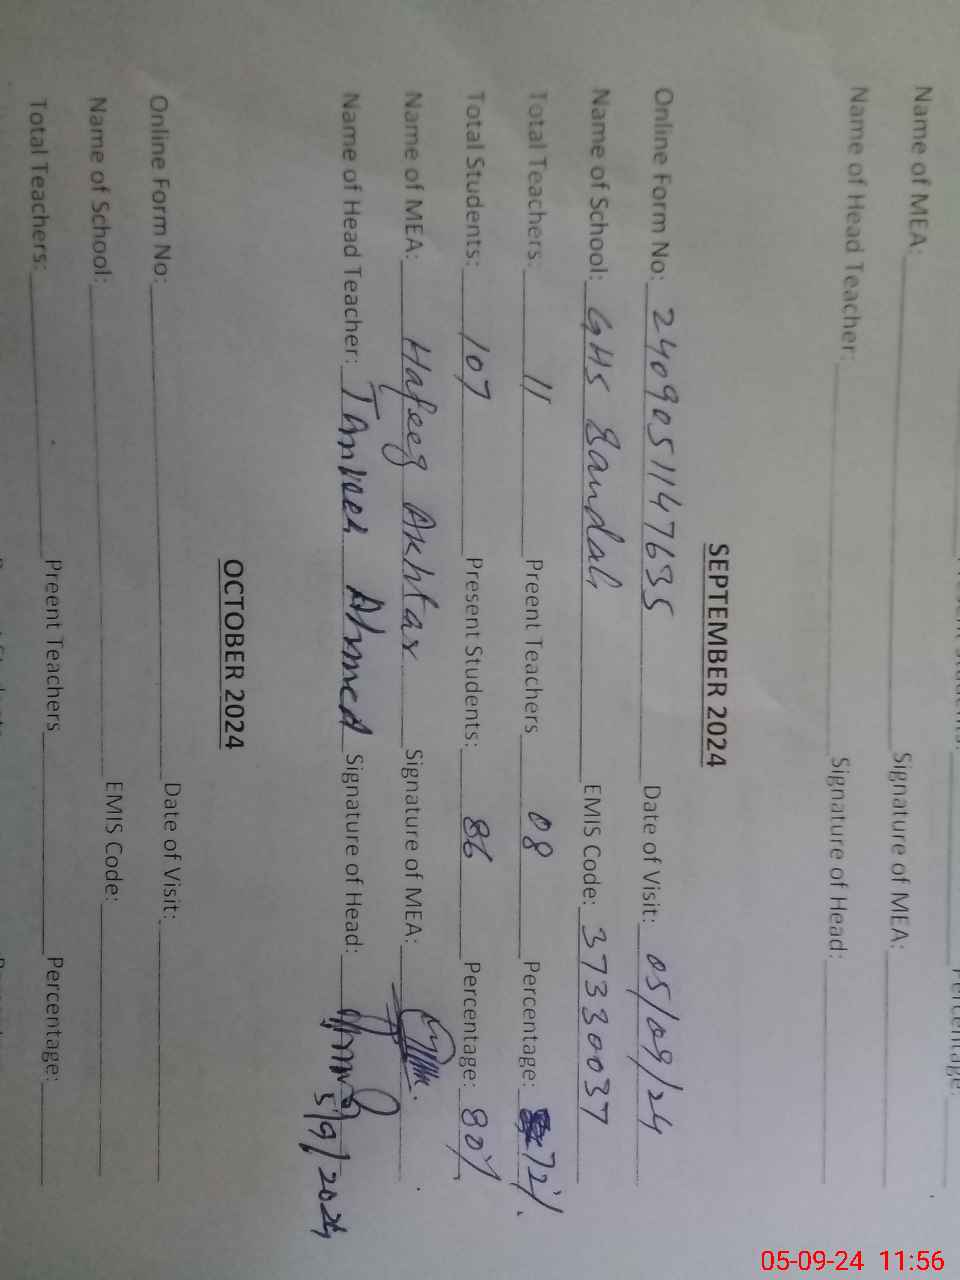 Percentage:
Name of MEA: Signature of MEA:
Name of Head Teacher: Signature of Head:
SEPTEMBER 2024
Online Form No: 2409051147635 Date of Visit: 05/09/24
Name of School: GHS Bandah EMIS Code: 37330037
Total Teachers: 11 Preent Teachers 08 Percentage: 72%
Total Students: 107 Present Students: 86 Percentage: 80%
Name of MEA: Hafeez Akhtar Signature of MEA:
Name of Head Teacher: Tanveer Ahmed Signature of Head: 5/9/2024
OCTOBER 2024
Online Form No: Date of Visit:
Name of School: EMIS Code:
Total Teachers: Preent Teachers Percentage:
05-09-24 11:56